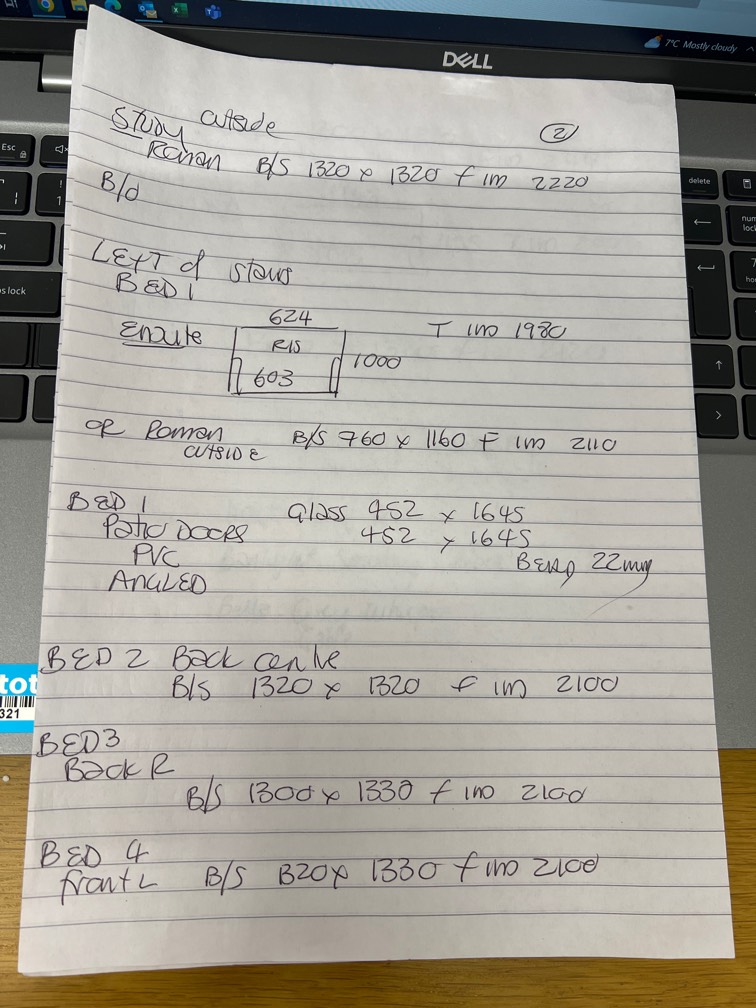 7°C Mostly cloudy
DELL
Esc
delete
s lock
STUDY outside
②
Roman B/S 1320 x 1320 f im 2220
B/o
LEFT of stairs
BED 1
Ensuite
624
RIS
603
1000
T im 1980
or Roman B/S 760 x 1160 F im 2110
OUTSIDE
BED 1 Glass 452 x 1645
Patio Doors 452 x 1645
PVC Bead 22mm
ANGLED
BED 2 Back centre
B/S 1320 x 1320 f im 2100
BED 3
Back R
B/S 1300 x 1330 f im 2100
BED 4
front L B/S 1320 x 1330 f im 2100
tot
321